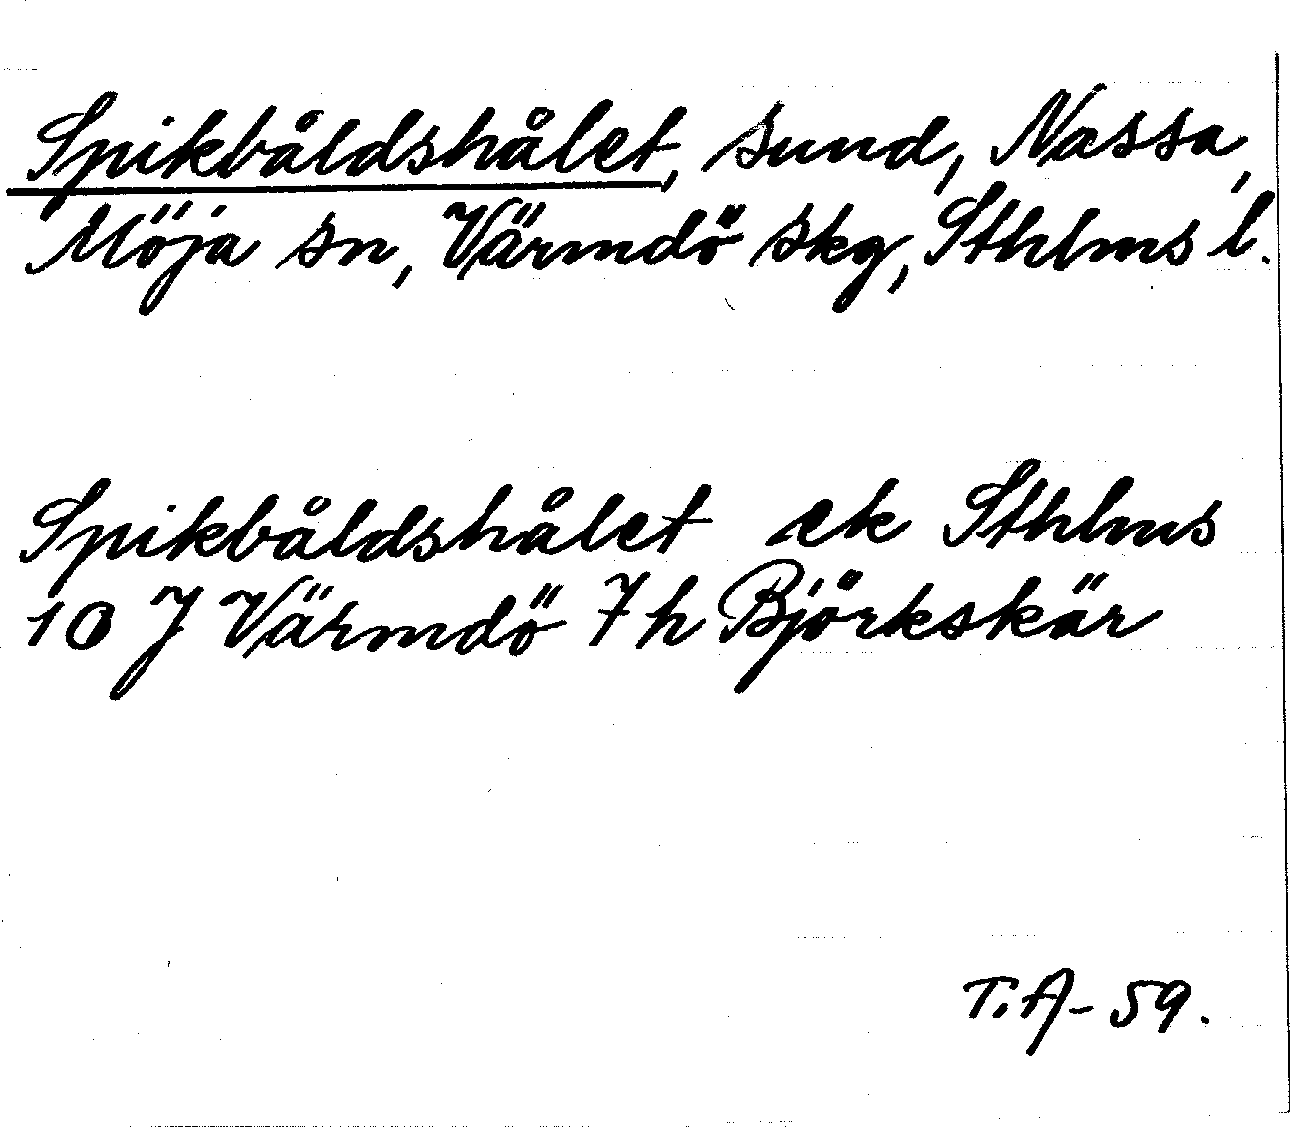 Spikbåldshålet, sund, Nassa,
Möja sn, Värmdö skg, Sthlms l.
Spikbåldshålet ek Sthlms
10 J Värmdö 7 h Björkskär
T.A-59.